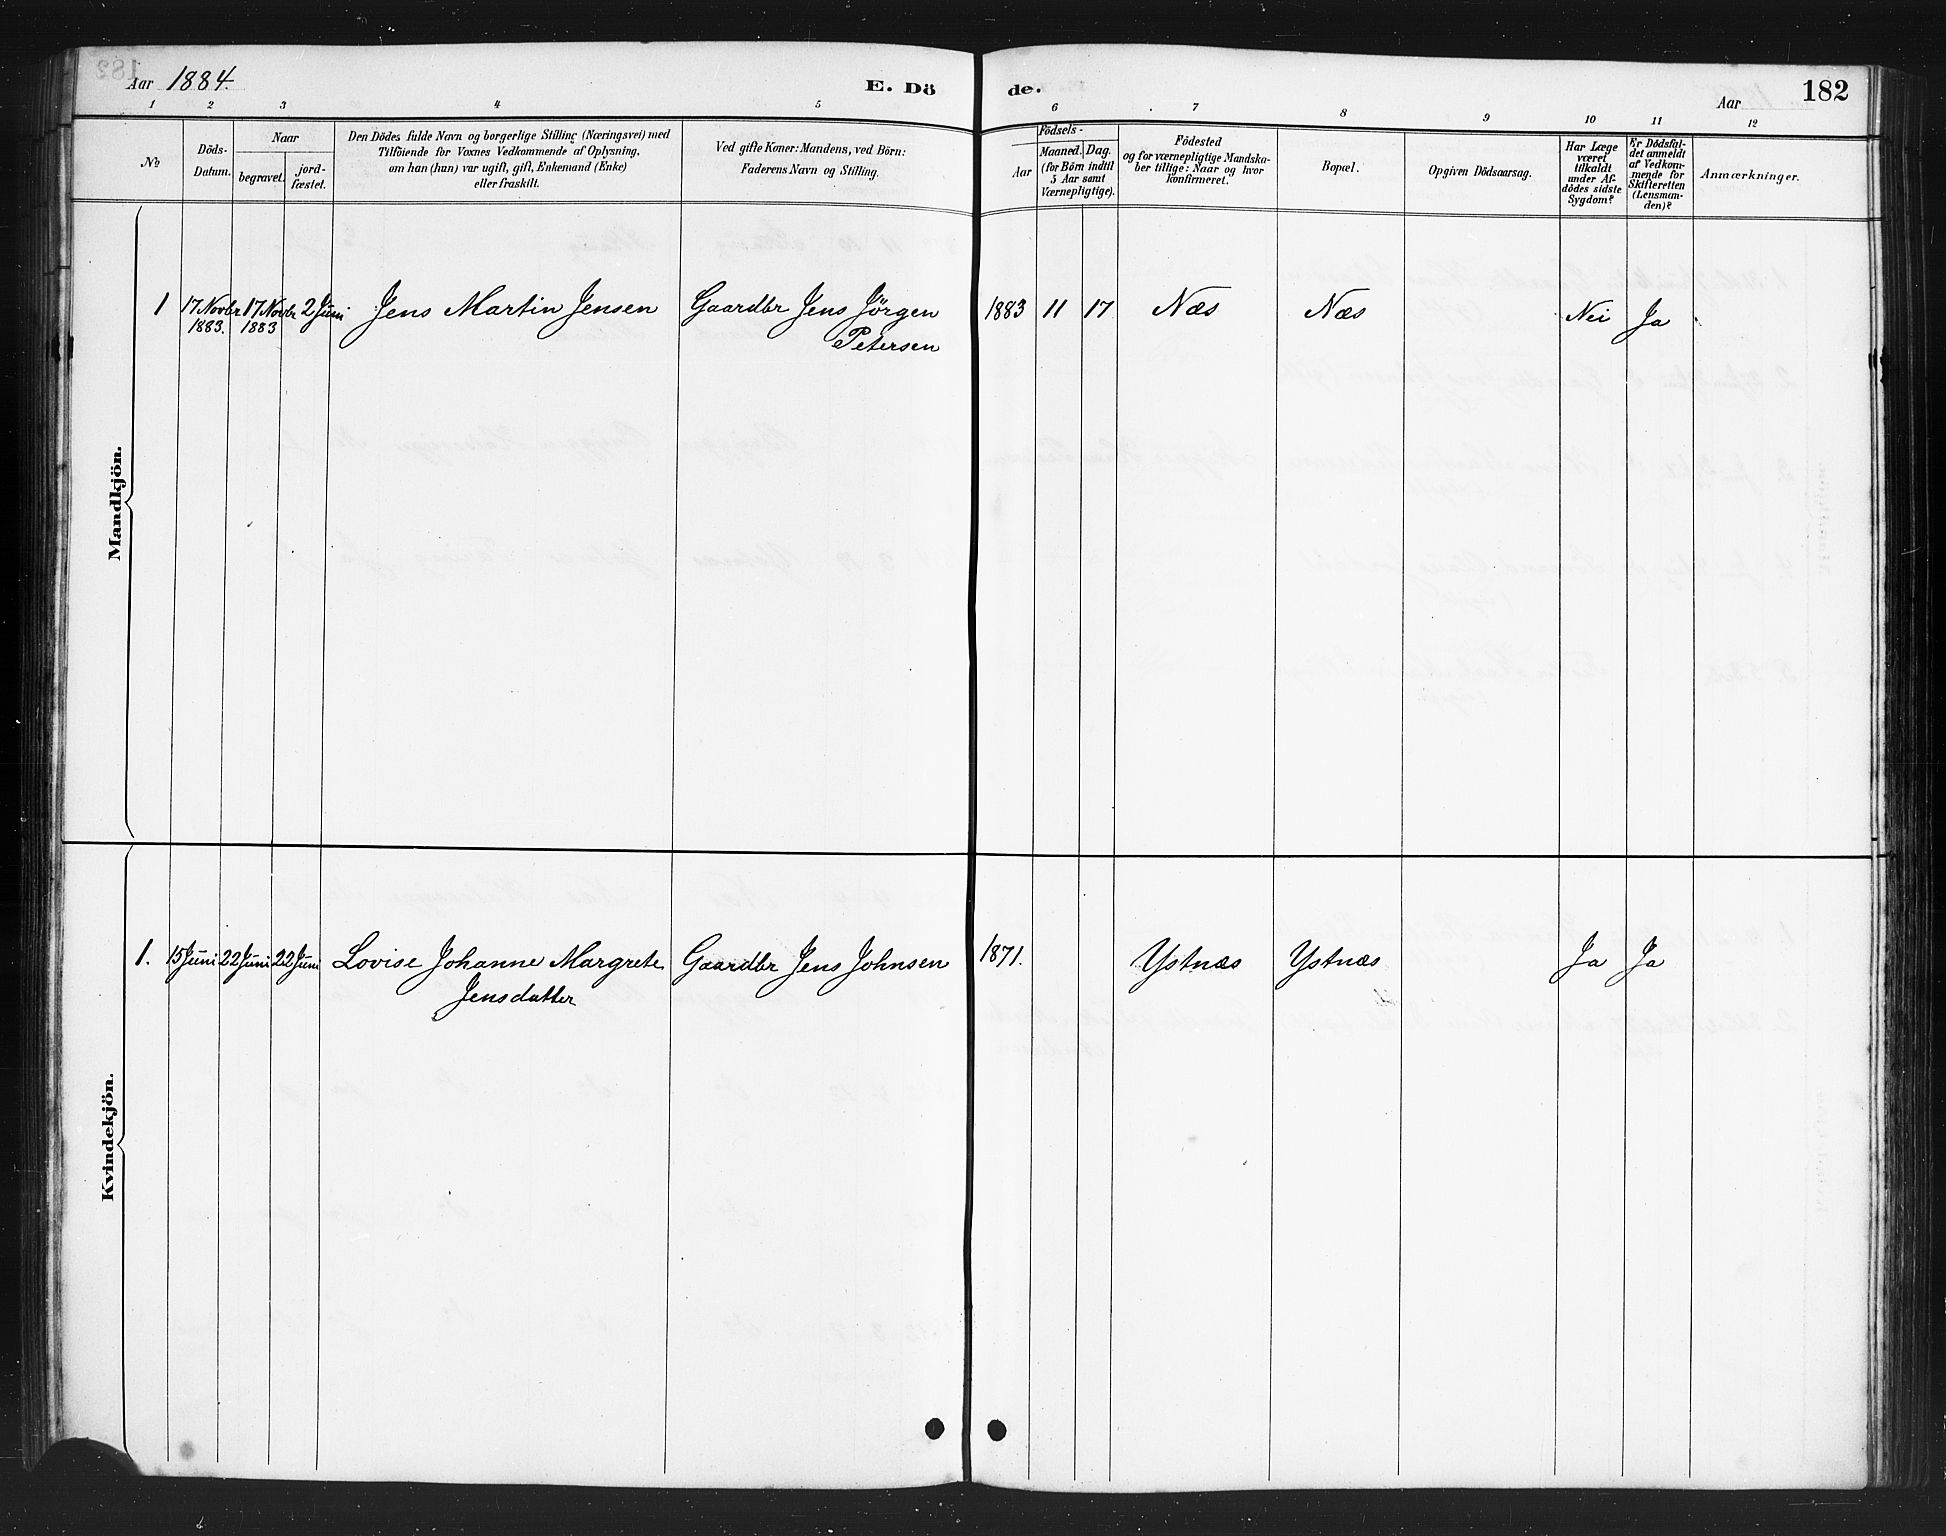 Aar 1884.
E. Dö
de.
Aar
182
1 2 3 4 5
6 7 8 9 10 11 12
No
Döds-
Datum.
Naar
begravet.
jord-
fæstet.
Den Dödes fulde Navn og borgerlige Stilling (Næringsvei) med
Tilföiende for Voxnes Vedkommende af Oplysning,
om han (hun) var ugift, gift, Enkemand (Enke)
eller fraskilt.
Ved gifte Koner: Mandens, ved Börn:
Faderens Navn og Stilling.
Födsels-
Aar
Maaned.
Dag.
(for Börn indtil
5 Aar samt
Værnepligtige).
Födested
og for værnepligtige Mandska-
ber tillige: Naar og hvor
konfirmeret.
Bopæl.
Opgiven Dödsaarsag.
Har Læge
været
tilkaldt
under Af-
dödes sidste
Sygdom?
Er Dödsfal-
det anmeldt
af Vedkom-
mende for
Skifteretten
(Lensman-
den)?
Anmærkninger.
Mandkjön.
1 17 Novbr 17 Novbr 2 Juni Jens Martin Jensen Gaardbr Jens Jørgen 1883 11 17 Næs Næs Nei Ja
1883. 1883 Petersen
Kvindekjön.
1. 15 Juni 22 Juni 22 Juni Lovise Johanne Margrete Gaardbr Jens Johnsen 1871. Ystnæs Ystnæs Ja Ja
Jensdatter